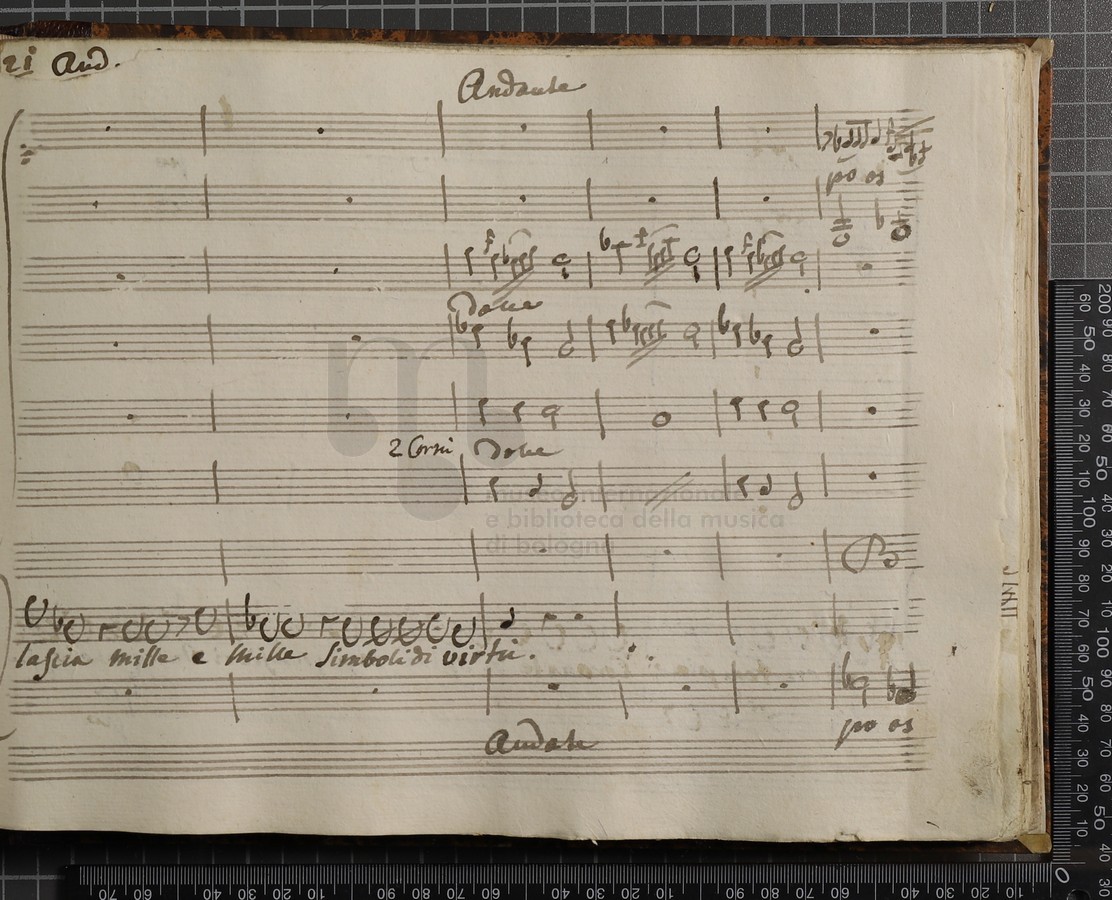 And.
Andante
po os
Dolce
2 Corni Dolce
museo internazionale
e biblioteca della musica
di bologna
lascia mille e mille Simboli di virtu.
po os
Andate